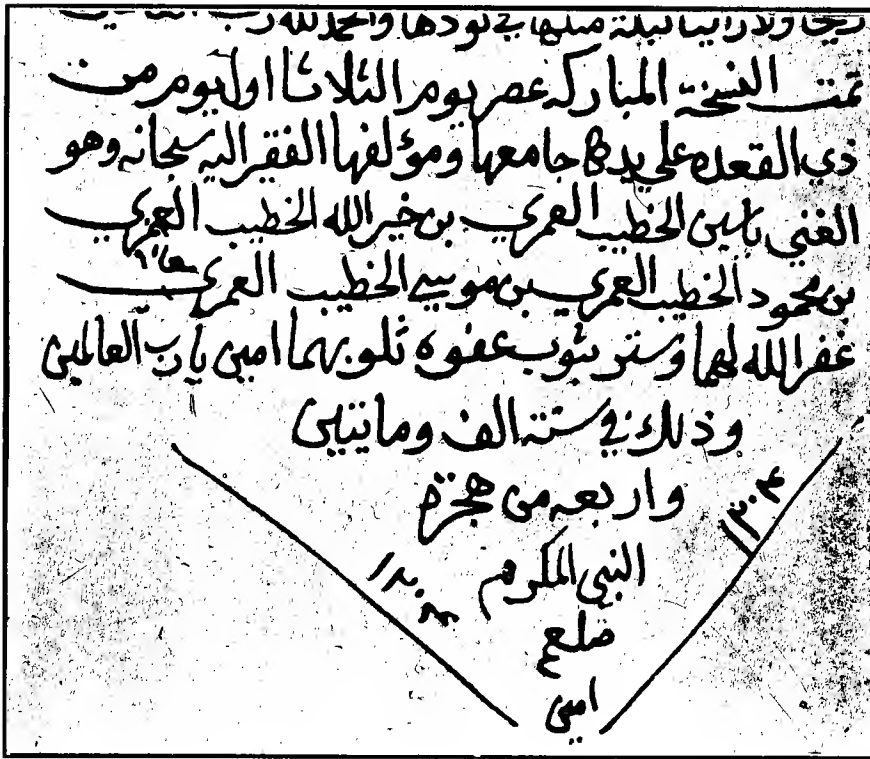 ريحا ولا راينا ليلة مثلها في نودها والحمد لله رب
تمت النسخة المباركه عصر يوم الثلاثا اول يوم من
ذي القعده علي يد جامعها ومؤلفها الفقر اليه سبحانه وهو
الغني ياسين الخطيب العمري بن خير الله الخطيب العمري
بن محمود الخطيب العمري بن موسي الخطيب العمري
غفر الله لهما وستر بثوب عفوه ذلوبهما امين يا رب العالمين
وذلك في سنة الف وماتيين
واربعه من هجرة
١٢٠٤
النبي المكرم
١٢٠٤
صلعم
امين